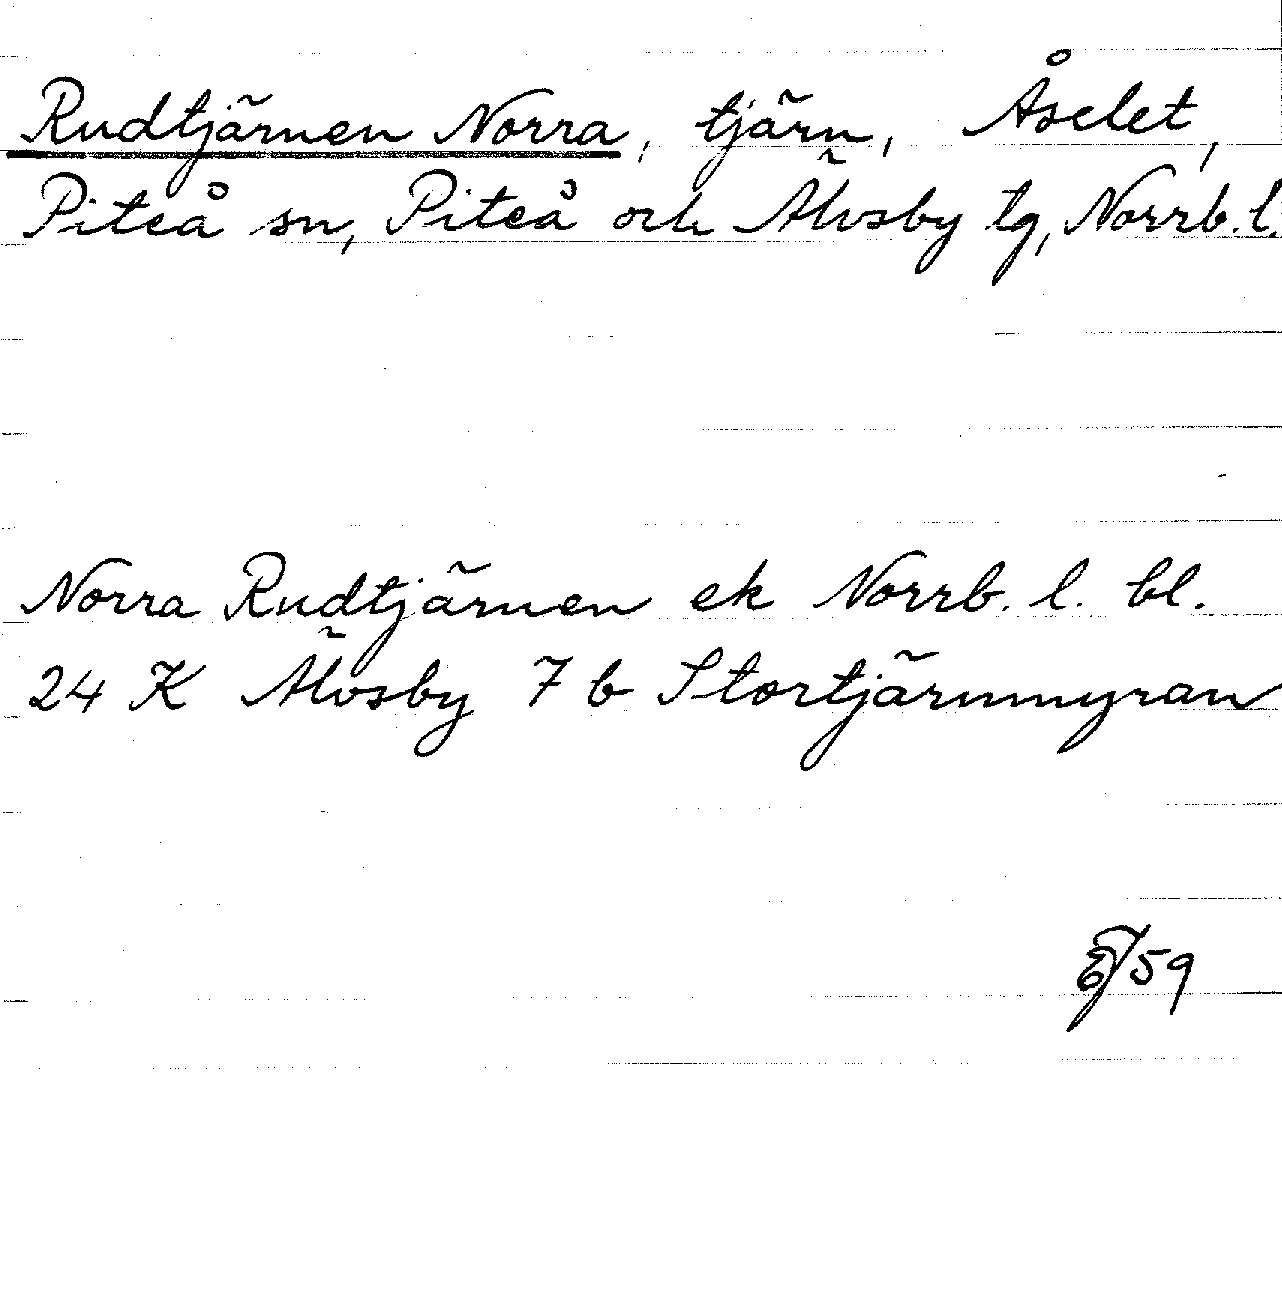 Rudtjärnen Norra, tjärn, Åselet,
Piteå sn, Piteå och Älvsby tg, Norrb. l.
Norra Rudtjärnen ek Norrb. l. bl.
24 K Älvsby 7 b Stortjärnmyran
59